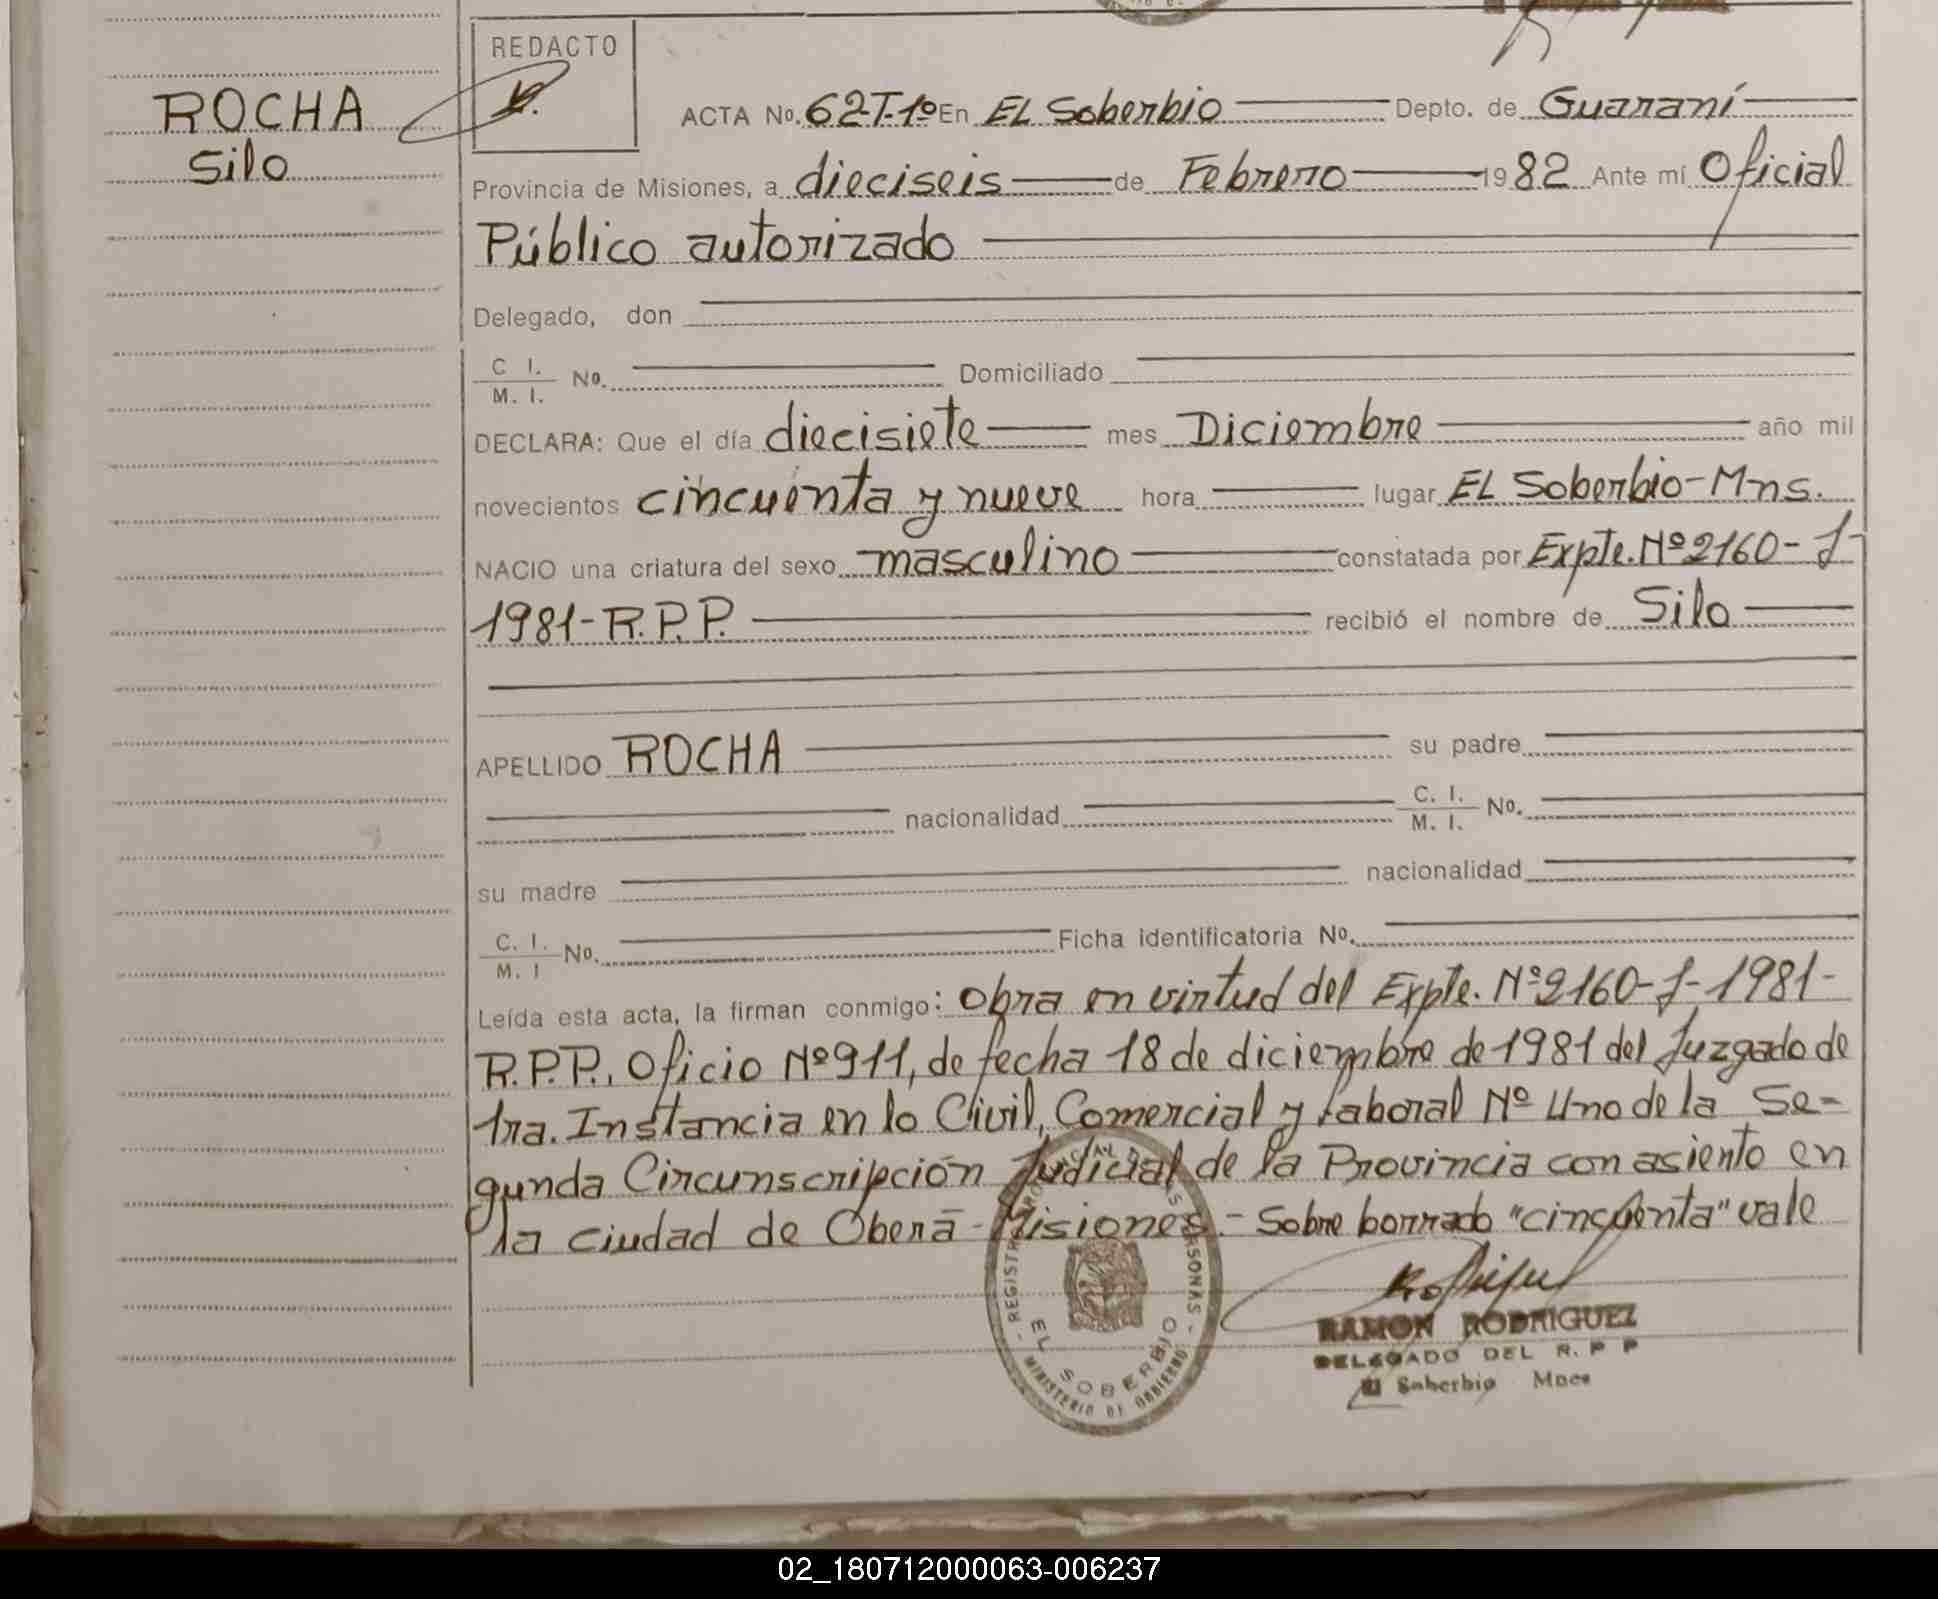 REDACTO
ROCHA
Silo
ACTA No. 62-T-1º En EL Soberbio Depto. de Guaraní
Provincia de Misiones, a dieciseis de Febrero 1982 Ante mí Oficial
Público autorizado
Delegado, don
C. I.
M. I. No. Domiciliado
DECLARA: Que el día diecisiete mes Diciembre año mil
novecientos cincuenta y nueve hora lugar EL Soberbio-Mns.
NACIO una criatura del sexo masculino constatada por Expte. Nº 2160-J-
1981-R.P.P. recibió el nombre de Silo
APELLIDO ROCHA su padre
nacionalidad C. I.
M. I. No.
su madre nacionalidad
C. I.
M. I No. Ficha identificatoria No.
Leída esta acta, la firman conmigo: Obra en virtud del Expte. Nº 2160-J-1981-
R.P.P., Oficio Nº 911, de fecha 18 de diciembre de 1981 del Juzgado de
1ra. Instancia en lo Civil, Comercial y Laboral Nº Uno de la Se-
gunda Circunscripción Judicial de la Provincia con asiento en
la ciudad de Oberá-Misiones.- Sobre borrado "cincuenta" vale
REGISTRO PROVINCIAL DE LAS PERSONAS
EL SOBERBIO
MINISTERIO DE GOBIERNO
RAMON RODRIGUEZ
DELEGADO DEL R. P P
El Soberbio Mnes
02_180712000063-006237